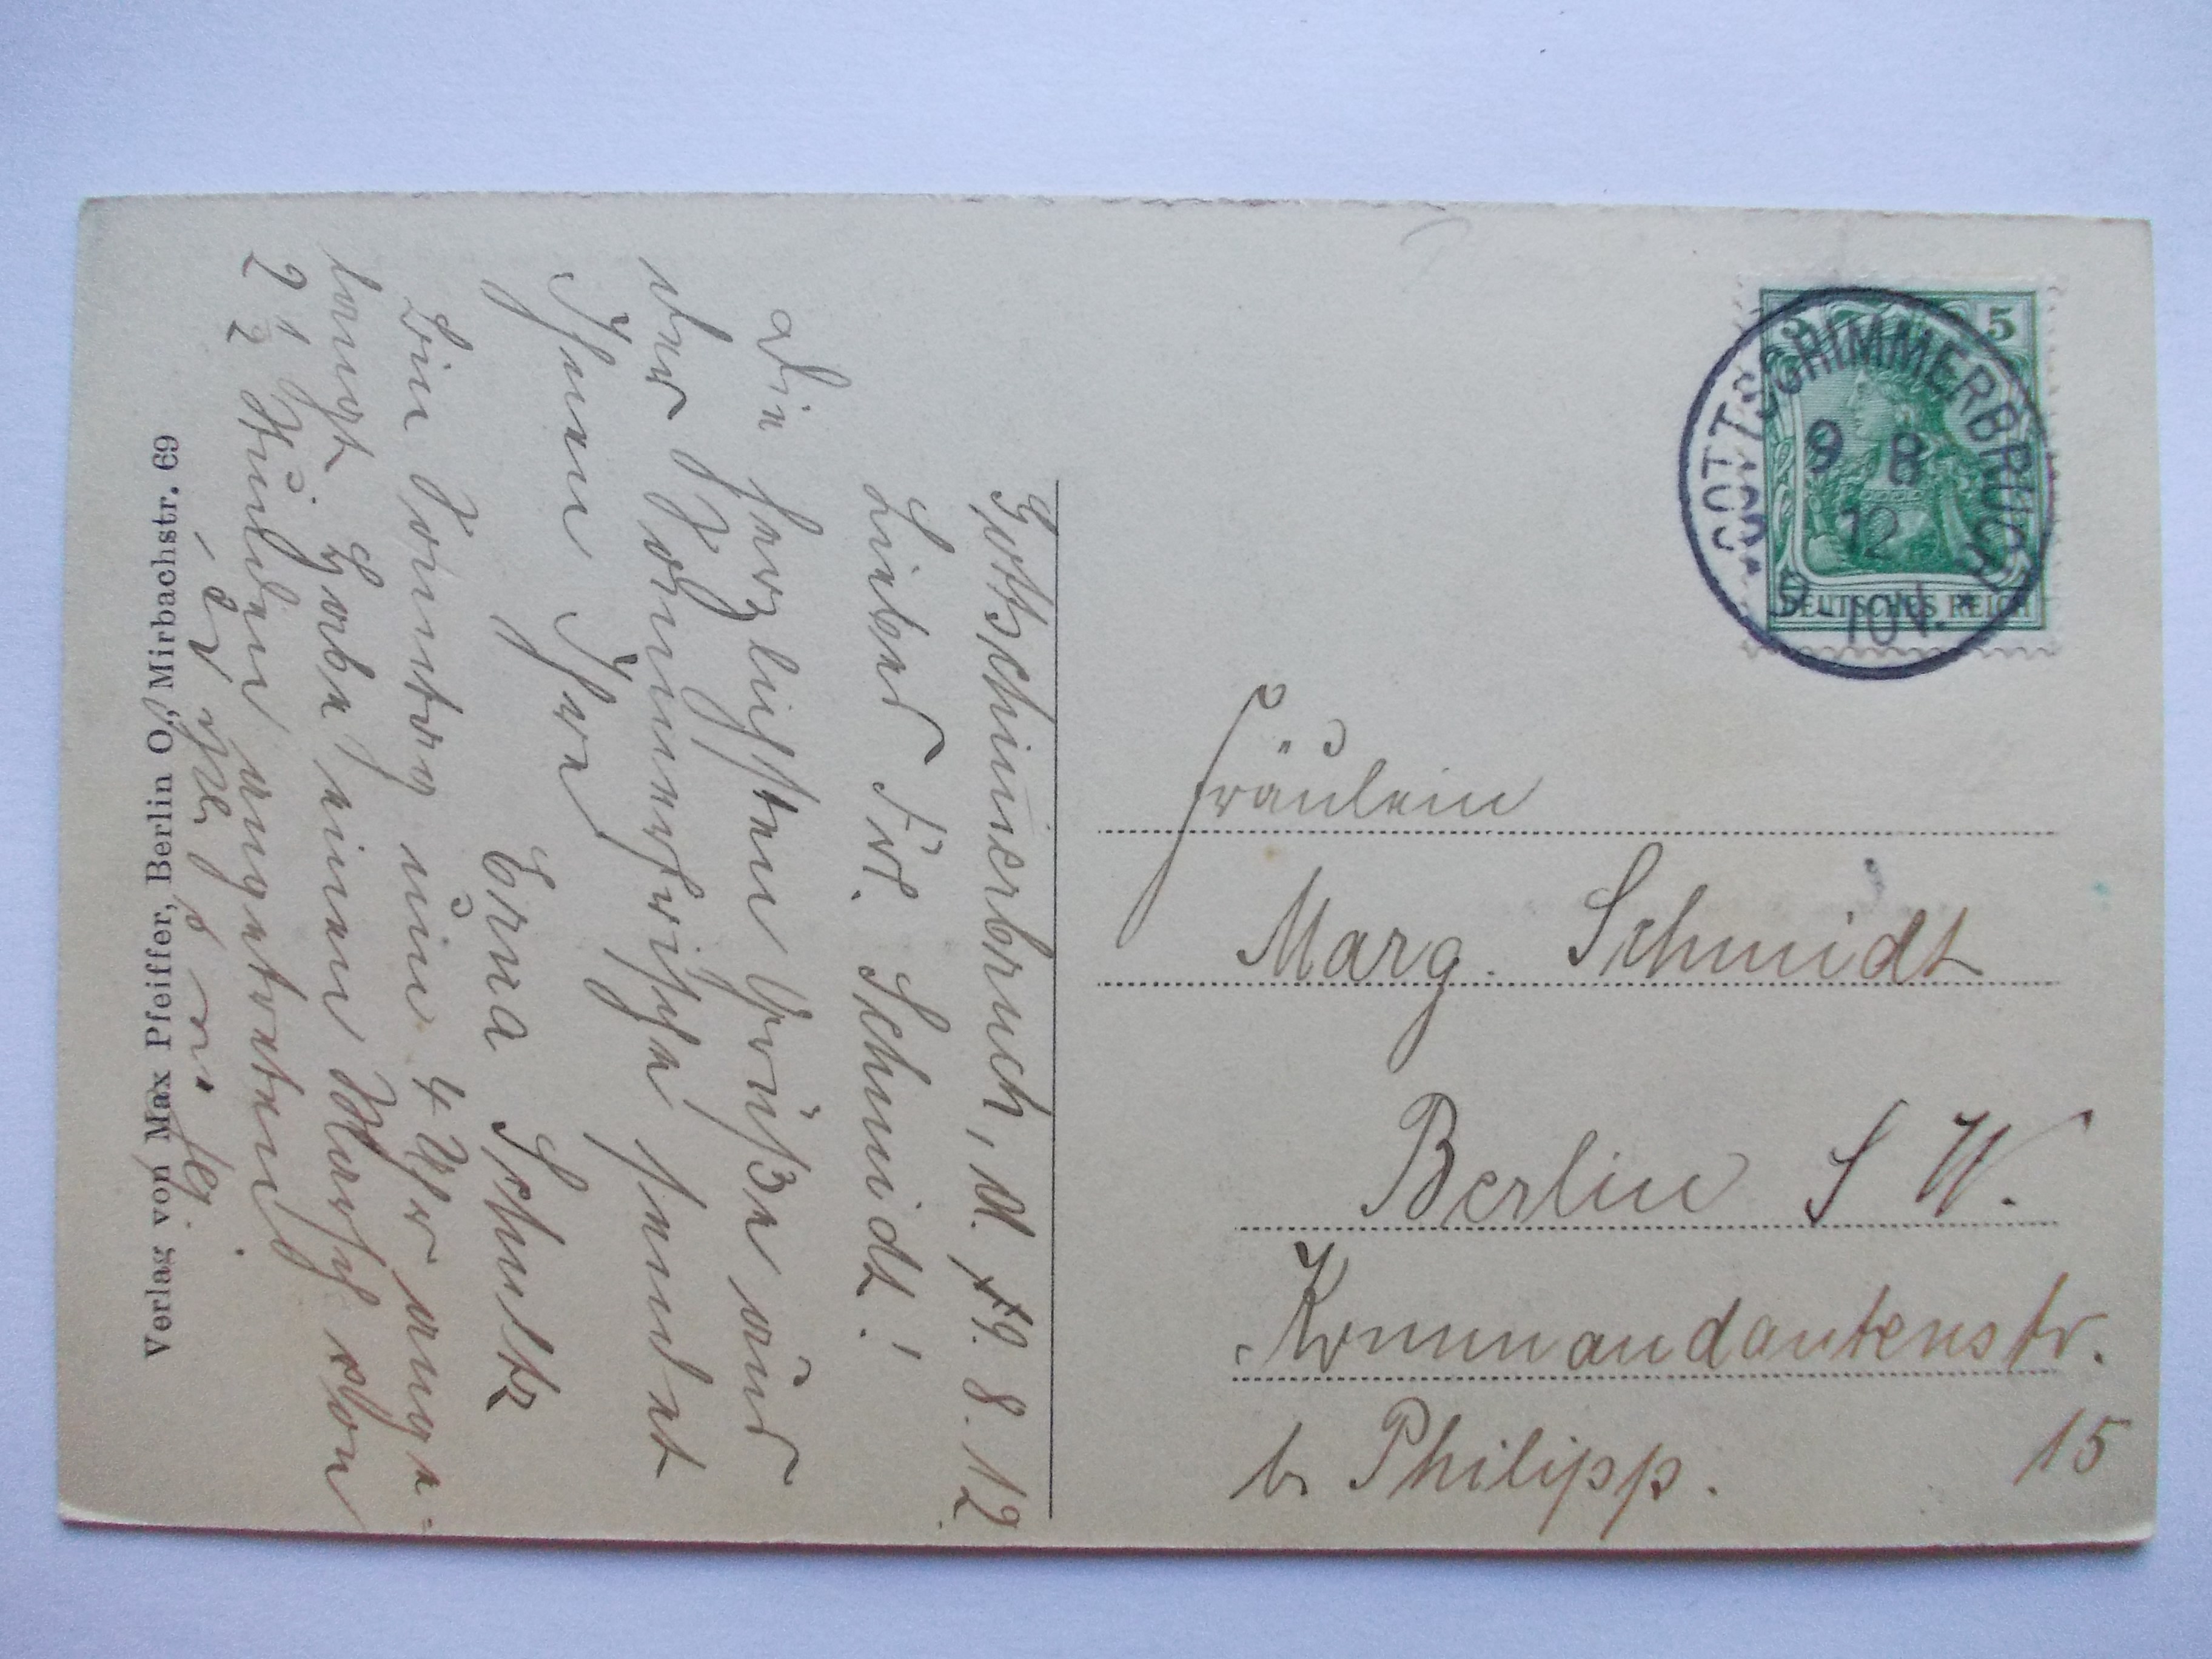 Gottschimmerbruch, d. 9. 8. 12.
Liebes Frl. Schmidt!
Die herzlichsten Grüße aus
der Sommerfrische sendet
Ihnen Ihre
Erna Schultz
Bin Sonntag um 4 Uhr ange-
langt. Habe einen Marsch von
2 1/2 Stunden angetreten
Verlag von Max Pfeiffer, Berlin O., Mirbachstr. 69
5 5
DEUTSCHES REICH
GOTTSCHIMMERBRUCH
9 8
12
9-10V.
Fräulein
Marg. Schmidt
Berlin S W.
Kommandantenstr.
15
b. Philipp.